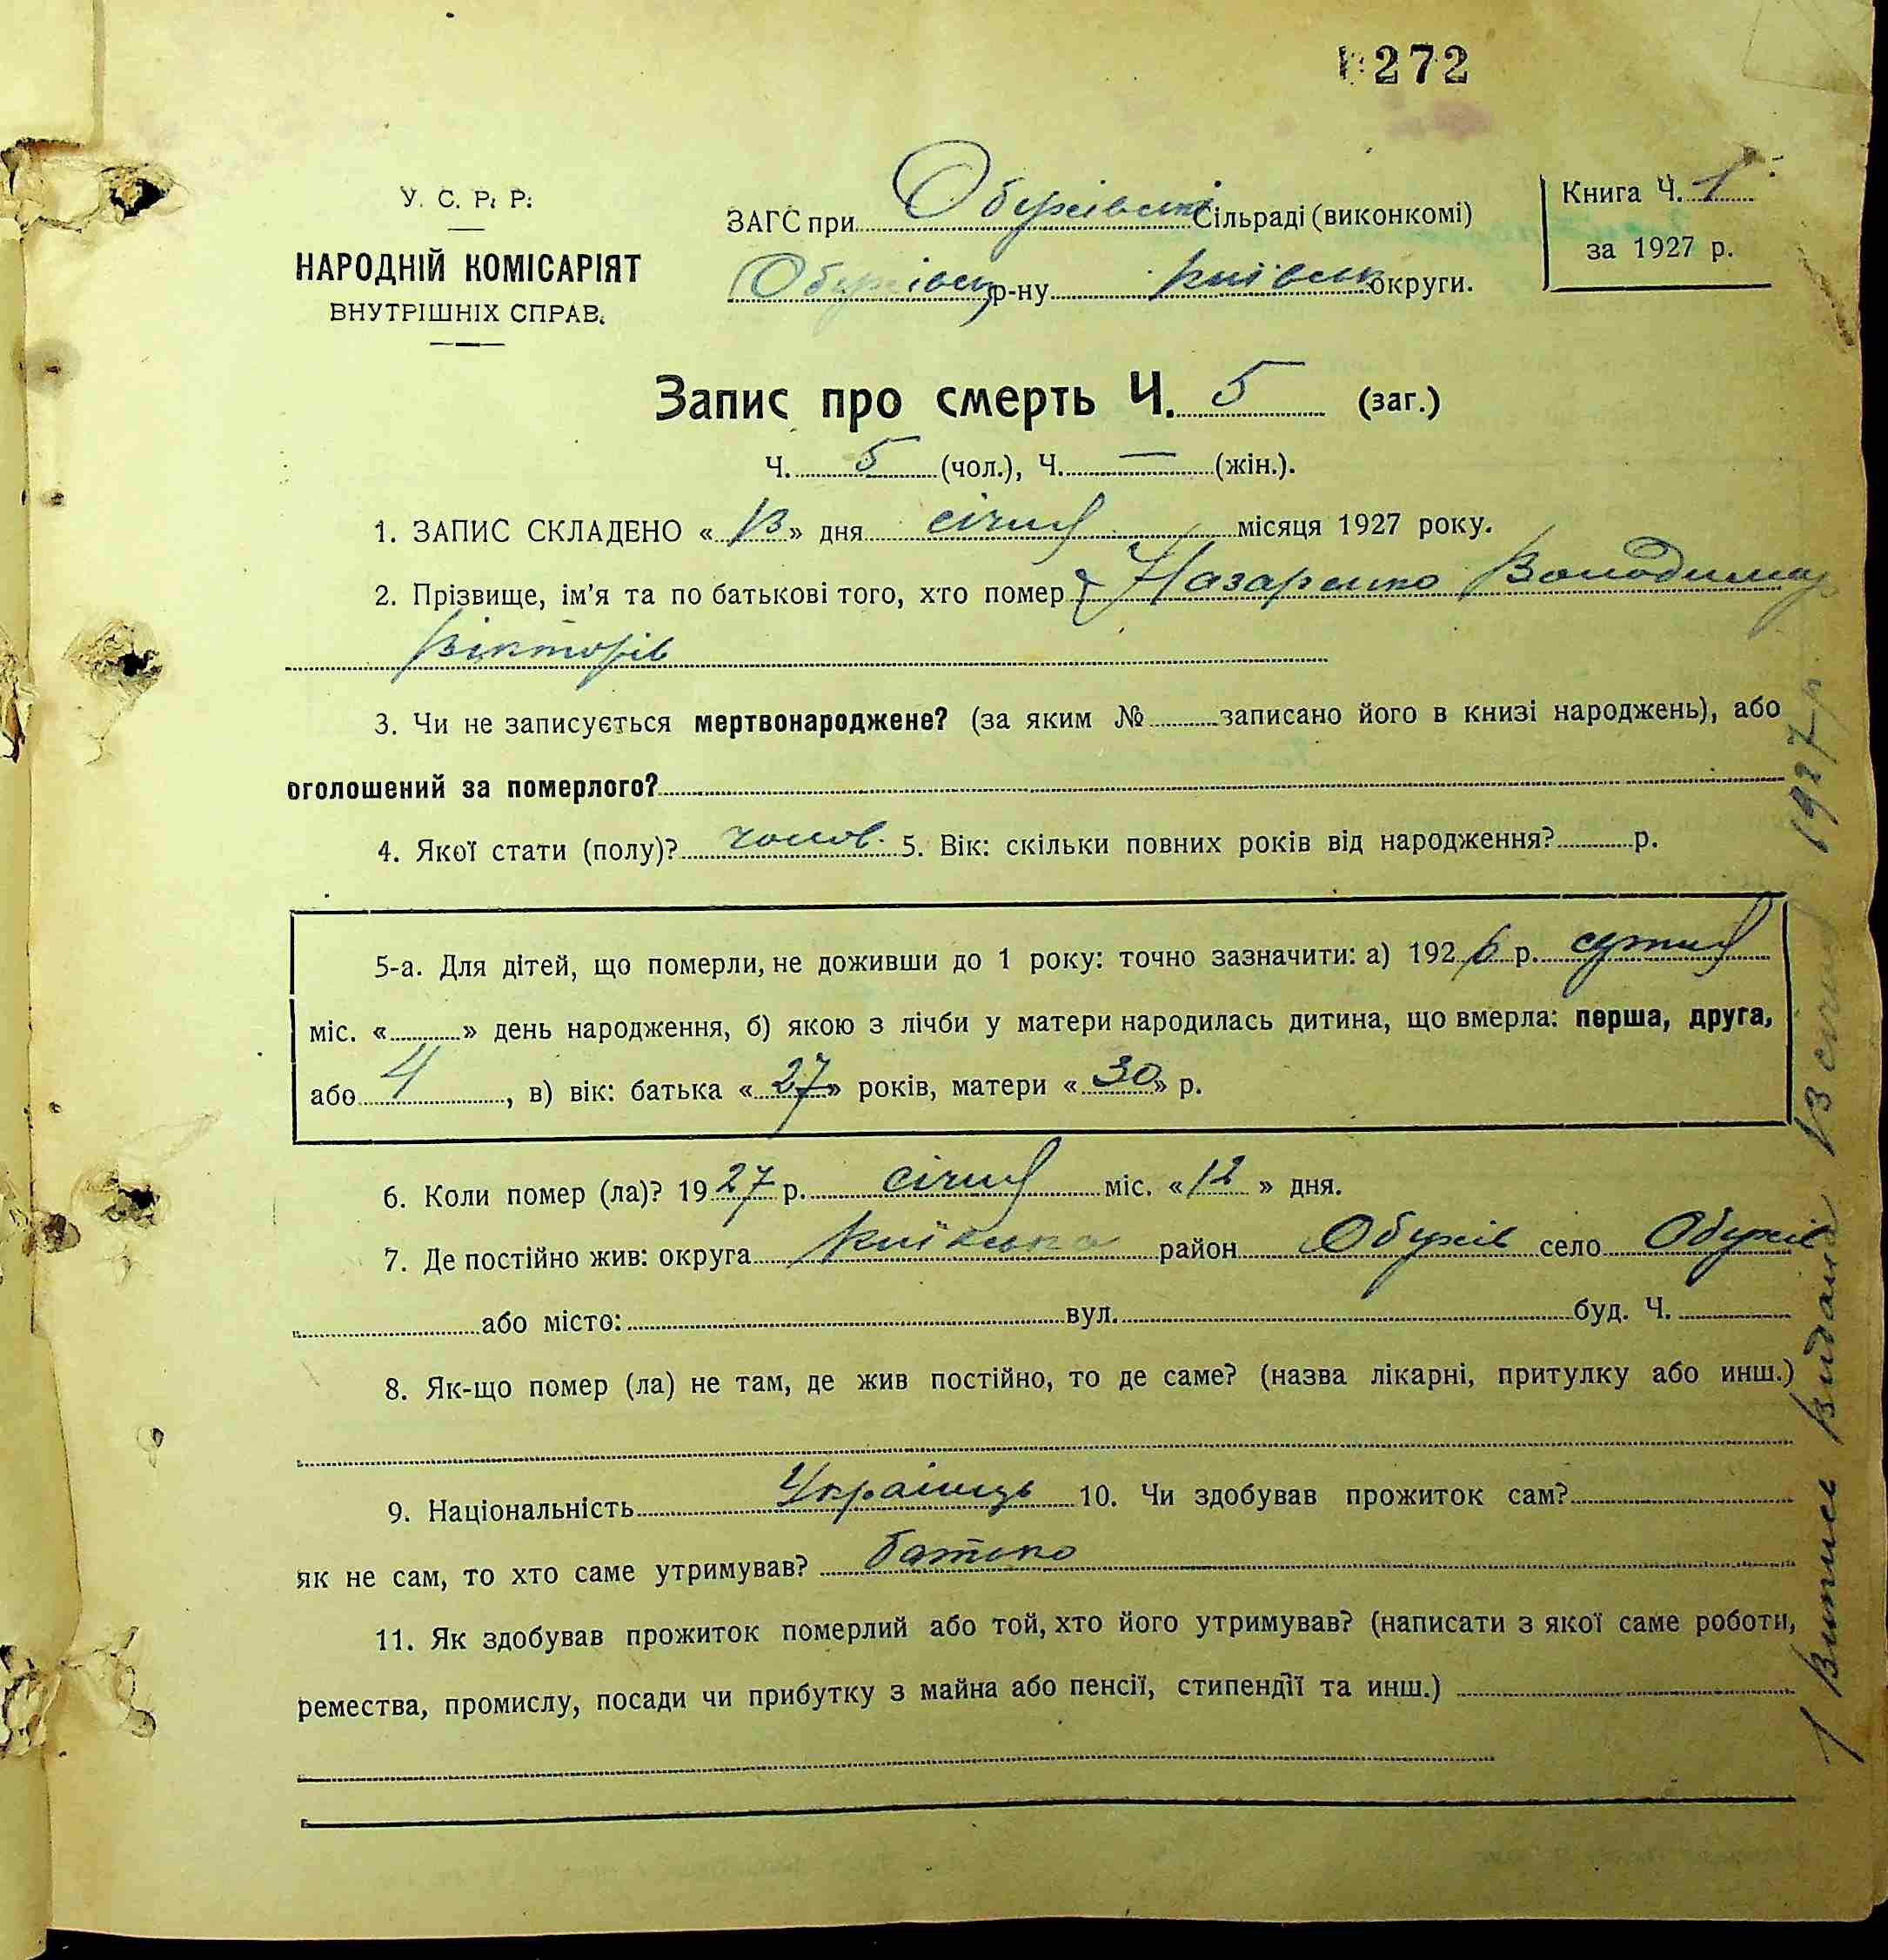 272
У. С. Р. Р.
НАРОДНІЙ КОМІСАРІЯТ
ВНУТРІШНІХ СПРАВ.
ЗАГС при Обухівські Сільраді (виконкомі)
Обухівськ р-ну Київськ округи.
Книга Ч. 1
за 1927 р.
Запис про смерть Ч. 5 (заг.)
Ч. 5 (чол.), Ч. — (жін.).
1. ЗАПИС СКЛАДЕНО «13» дня січня місяця 1927 року.
2. Прізвище, ім'я та по батькові того, хто помер Назаренко Володимир
Вікторів
3. Чи не записується мертвонароджене? (за яким № записано його в книзі народжень), або
оголошений за померлого?
4. Якої стати (полу)? чолов. 5. Вік: скільки повних років від народження? р.
5-а. Для дітей, що померли, не доживши до 1 року: точно зазначити: а) 1926 р.
міс. « » день народження, б) якою з лічби у матери народилась дитина, що вмерла: перша, друга,
або 4, в) вік: батька «27» років, матери «30» р.
6. Коли помер (ла)? 1927 р. січня міс. «12» дня.
7. Де постійно жив: округа Київська район Обухів село Обухів
або місто: вул. буд. Ч.
8. Як-що помер (ла) не там, де жив постійно, то де саме? (назва лікарні, притулку або инш.)
9. Національність Українець 10. Чи здобував прожиток сам?
як не сам, то хто саме утримував? батько
11. Як здобував прожиток померлий або той, хто його утримував? (написати з якої саме роботи,
ремества, промислу, посади чи прибутку з майна або пенсії, стипендії та инш.)
1 витис видано 13 січня 1927 р.